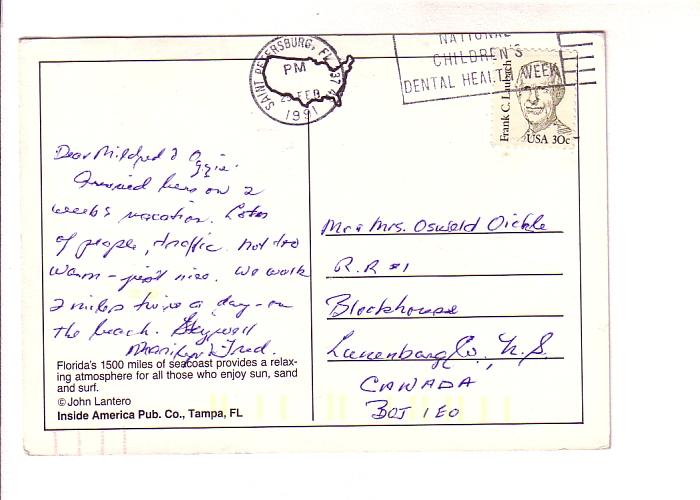 SAINT PETERSBURG, FL 337
PM
25 FEB
1991
NATIONAL
CHILDREN'S
DENTAL HEALTH WEEK
Frank C. Laubach
USA 30c
Dear Mildred & Oggie.
Arrived here on 2
weeks vacation. Lots
of people, traffic. Not too
warm - just nice. We walk
2 miles twice a day - on
the beach.
Marilyn & Fred.
Florida's 1500 miles of seacoast provides a relax-
ing atmosphere for all those who enjoy sun, sand
and surf.
© John Lantero
Inside America Pub. Co., Tampa, FL
Mr & Mrs. Oswald Oickle
R.R #1
Blockhouse
Lunenburg Co., N.S.
CANADA
B0J 1E0